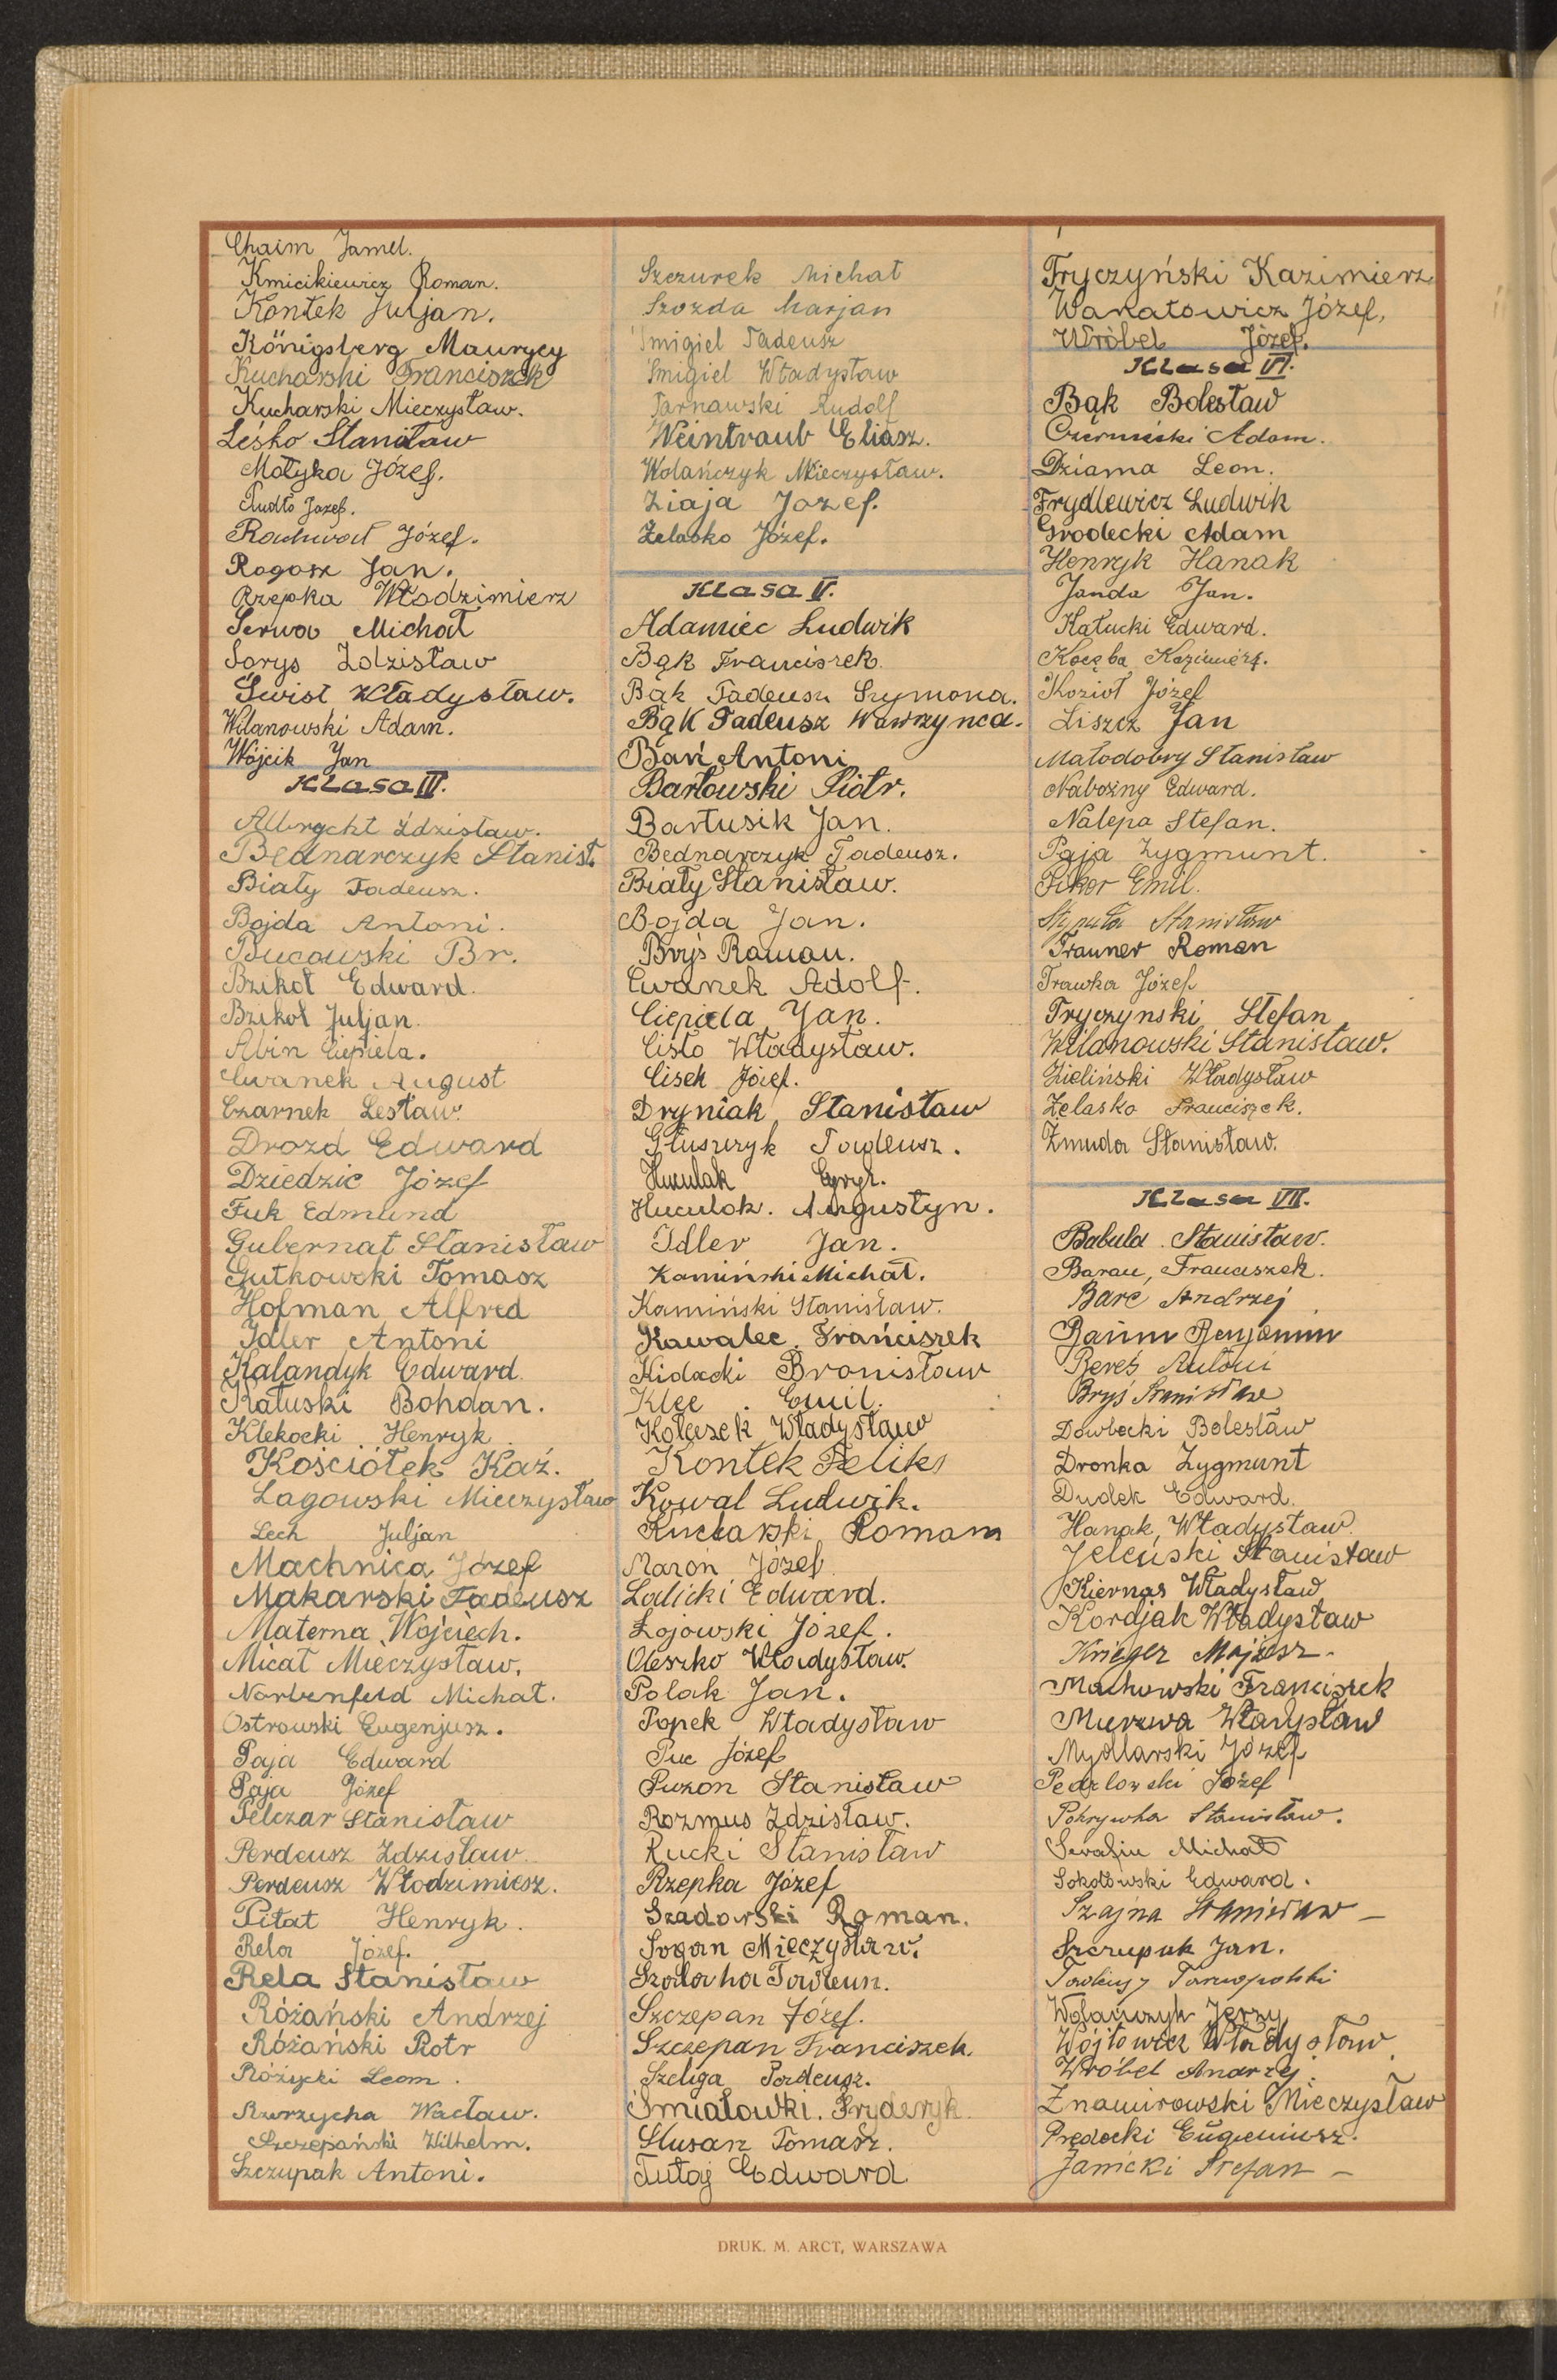 Chaim Jamel.
Kmicikiewicz Roman.
Kontek Juljan.
Königsberg Maurycy
Kucharski Franciszek
Kucharski Mieczysław.
Leśko Stanisław
Motyka Józef.
Pudło Józef.
Rachwał Józef.
Rogosz Jan.
Rzepka Włodzimierz
Serwa Michał
Sorys Zdzisław
Świst Władysław.
Wilanowski Adam.
Wójcik Jan
Klasa III.
Albrycht Zdzisław.
Bednarczyk Stanisł.
Biały Tadeusz.
Bojda Antoni.
Bucowski Br.
Bzikot Edward.
Bzikot Juljan.
Albin Ciepiela.
Cwanek August
Czarnek Lesław.
Drozd Edward
Dziedzic Józef
Fuk Edmund
Gubernat Stanisław
Gutkowski Tomasz
Hofman Alfred
Idler Antoni
Kalandyk Edward.
Kałuski Bohdan.
Klekocki Henryk
Kościółek Kaź.
Lagowski Mieczysław
Lech Juljan
Machnica Józef
Makarski Tadeusz
Materna Wojciech.
Micał Mieczysław.
Norbenfeld Michał.
Ostrowski Eugenjusz.
Paja Edward
Paja Józef
Pelczar Stanisław
Perdeusz Zdzisław.
Perdeusz Włodzimiesz.
Pitat Henryk.
Rela Józef.
Rela Stanisław
Różański Andrzej
Różański Piotr
Różycki Leon.
Rzerzycha Wacław.
Szczepański Wilhelm.
Szczupak Antoni.
Szczurek Michał
Szozda Marjan
Śmigiel Tadeusz
Śmigiel Władysław
Tarnawski Rudolf
Weintraub Eliasz.
Wolańczyk Mieczysław.
Ziaja Józef.
Żelasko Józef.
Klasa V.
Adamiec Ludwik
Bąk Franciszek.
Bąk Tadeusz Szymona.
Bąk Tadeusz Wawrzynca.
Bań Antoni
Bartowski Piotr.
Bartusik Jan.
Bednarczyk Tadeusz.
Biały Stanisław.
Bojda Jan.
Bryś Roman.
Cwanek Adolf.
Ciepiela Jan.
Cisło Władysław.
Cisek Józef.
Dryniak Stanisław
Głuszczyk Tadeusz.
Huculak Cyryl.
Huculak. Augustyn.
Idler Jan.
Kamiński Michał.
Kamiński Stanisław.
Kawalec Franciszek
Kidacki Bronisław
Klee. Emil.
Kołeczek Władysław
Kontek Feliks
Kowal Ludwik.
Kucharski Roman
Maroń Józef
Lalicki Edward.
Łojowski Józef.
Oleszko Władysław.
Polak Jan.
Popek Władysław
Puc Józef
Puzon Stanisław
Rozmus Zdzisław.
Rucki Stanisław
Rzepka Józef
Szadowski Roman.
Sogan Mieczysław.
Szczepan Józef.
Szczepan Franciszek.
Szeliga Tadeusz.
Śmiałowki. Fryderyk.
Słusarz Tomasz.
Tutaj Edward
Tryczyński Kazimierz
Wakatowicz Józef,
Wróbel Józef.
Klasa VI.
Bąk Bolesław
Czerniecki Adam.
Dziama Leon.
Frydlewicz Ludwik
Grodecki Adam
Henryk Hanak
Janda Jan.
Kałucki Edward.
Kocęba Kazimierz.
Kozioł Józef
Liszcz Jan
Małodobry Stanisław
Nabożny Edward.
Nalepa Stefan.
Paja Zygmunt.
Pikor Emil.
Stypuła Stanisław
Trauner Roman
Trawka Józef
Tryczynski Stefan
Wilanowski Stanisław.
Zieliński Władysław
Żelasko Franciszek.
Żmuda Stanisław.
Klasa VII.
Babula. Stanisław.
Baran, Franciszek.
Barć Andrzej
Baum Benjamin
Bereś Antoni
Bryś Stanisław
Dowbecki Bolesław
Dronka Zygmunt
Dudek Edward.
Hanak Władysław.
Jeleński Stanisław
Kiernas Władysław
Kordjak Władysław
Krieger Mojżesz
Machowski Franciszek
Murzwa Władysław
Mydlarski Józef
Pędzlowski Józef
Pokrywka Stanisław.
Serafin Michał
Sokołowski Edward.
Szajna Stanisław -
Szczupak Jan.
Tadeusz Tarnopolski
Wolańczyk Jerzy
Wójtowicz Władysław
Wróbel Andrzej
Znamirowski Mieczysław
Prędocki Eugeniusz.
Janicki Stefan -
DRUK. M. ARCT, WARSZAWA